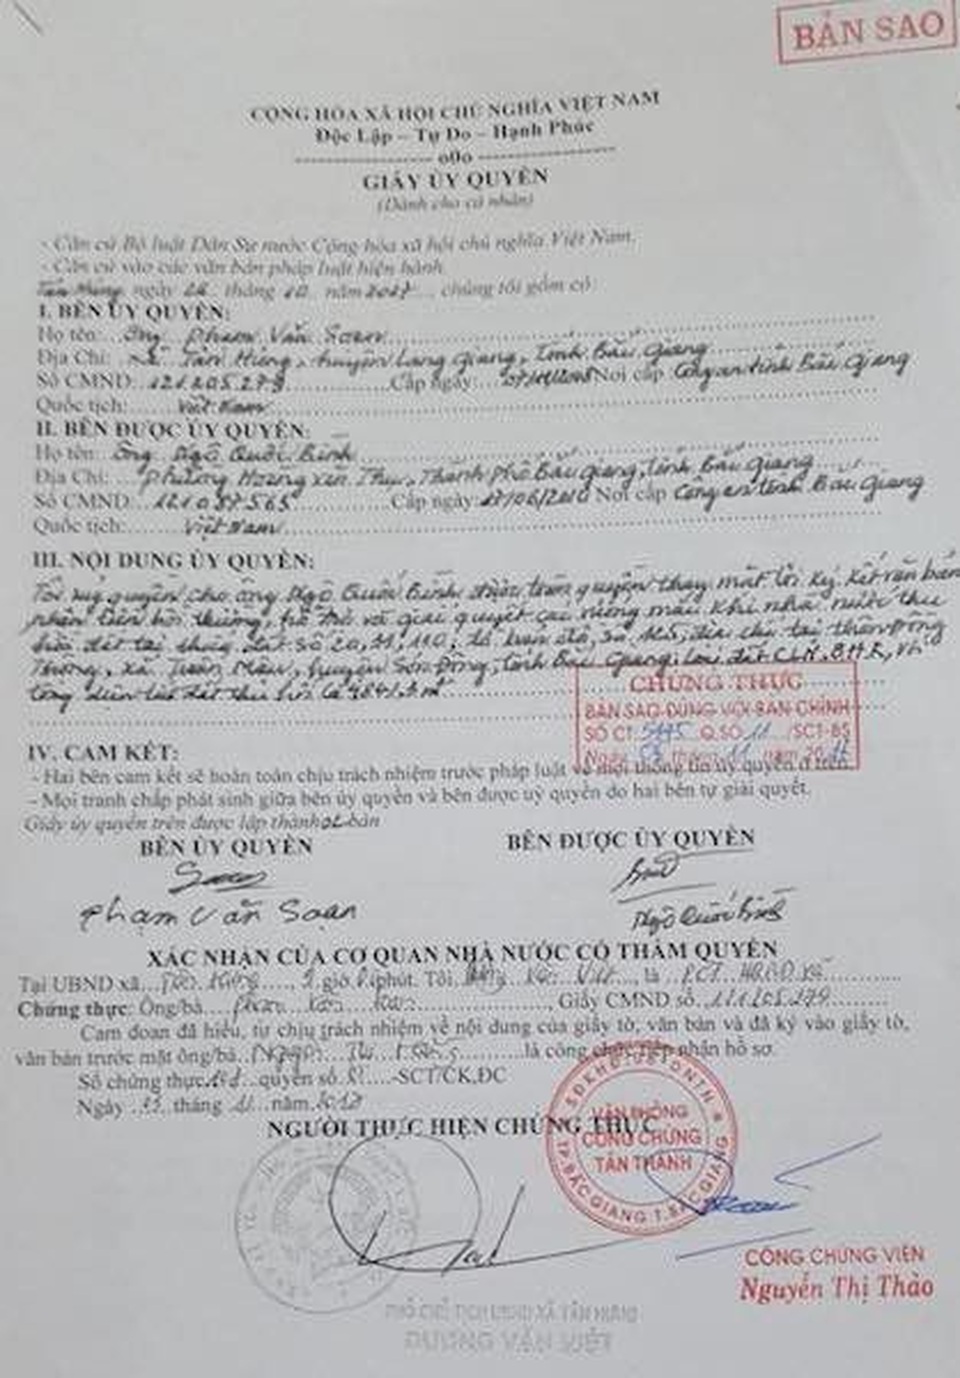 BẢN SAO
CỘNG HÒA XÃ HỘI CHỦ NGHĨA VIỆT NAM
Độc Lập – Tự Do – Hạnh Phúc
------------- o0o -------------
GIẤY ỦY QUYỀN
(Dành cho cá nhân)
- Căn cứ Bộ luật Dân Sự nước Cộng hòa xã hội chủ nghĩa Việt Nam.
- Căn cứ vào các văn bản pháp luật hiện hành.
ngày tháng năm, chúng tôi gồm có:
I. BÊN ỦY QUYỀN:
Họ tên: Ông Phạm Văn Soạn
Địa Chỉ: Xã Tân Hưng, huyện Lạng Giang, tỉnh Bắc Giang
Số CMND: 121205279 Cấp ngày: Nơi cấp Công an tỉnh Bắc Giang
Quốc tịch: Việt Nam
II. BÊN ĐƯỢC ỦY QUYỀN:
Họ tên: Ông Ngô Quốc Bình
Địa Chỉ: Phường Hoàng Văn Thụ, Thành Phố Bắc Giang, tỉnh Bắc Giang
Số CMND: Cấp ngày: 17/06/2010 Nơi cấp Công an tỉnh Bắc Giang
Quốc tịch: Việt Nam
III. NỘI DUNG ỦY QUYỀN:
Tôi uỷ quyền cho ông Ngô Quốc Bình được toàn quyền thay mặt tôi ký kết văn bản
nhận tiền bồi thường, hỗ trợ và giải quyết các vướng mắc khi nhà nước thu
hồi đất tại thửa đất số 20, 110, tờ bản đồ số địa chỉ tại thôn
xã Tuấn Mậu, huyện Sơn Động, tỉnh Bắc Giang, loại đất CLN, BHK,
tổng diện tích đất thu hồi là
CHỨNG THỰC
BẢN SAO ĐÚNG VỚI BẢN CHÍNH
SỐ CT 5445 Q.SỐ 11 /SCT-BS
Ngày tháng 11 năm 20
IV. CAM KẾT:
- Hai bên cam kết sẽ hoàn toàn chịu trách nhiệm trước pháp luật về mọi thông tin uỷ quyền ở trên.
- Mọi tranh chấp phát sinh giữa bên ủy quyền và bên được uỷ quyền do hai bên tự giải quyết.
Giấy ủy quyền trên được lập thành 02 bản
BÊN ỦY QUYỀN BÊN ĐƯỢC ỦY QUYỀN
Phạm Văn Soạn Ngô Quốc Bình
XÁC NHẬN CỦA CƠ QUAN NHÀ NƯỚC CÓ THẨM QUYỀN
Tại UBND xã Tân Hưng, giờ phút. Tôi Văn Viết, là
Chứng thực: Ông/bà Phạm Văn Soạn, Giấy CMND số 121205279
Cam đoan đã hiểu, tự chịu trách nhiệm về nội dung của giấy tờ, văn bản và đã ký vào giấy tờ,
văn bản trước mặt ông/bà là công chức tiếp nhận hồ sơ.
Số chứng thực quyển số -SCT/CK,ĐC
Ngày tháng 11 năm
NGƯỜI THỰC HIỆN CHỨNG THỰC
VĂN PHÒNG
CÔNG CHỨNG
TÂN THÀNH
TP.BẮC GIANG T.BẮC GIANG
CÔNG CHỨNG VIÊN
Nguyễn Thị Thảo
PHÓ CHỦ TỊCH UBND XÃ TÂN HƯNG
DƯƠNG VĂN VIẾT